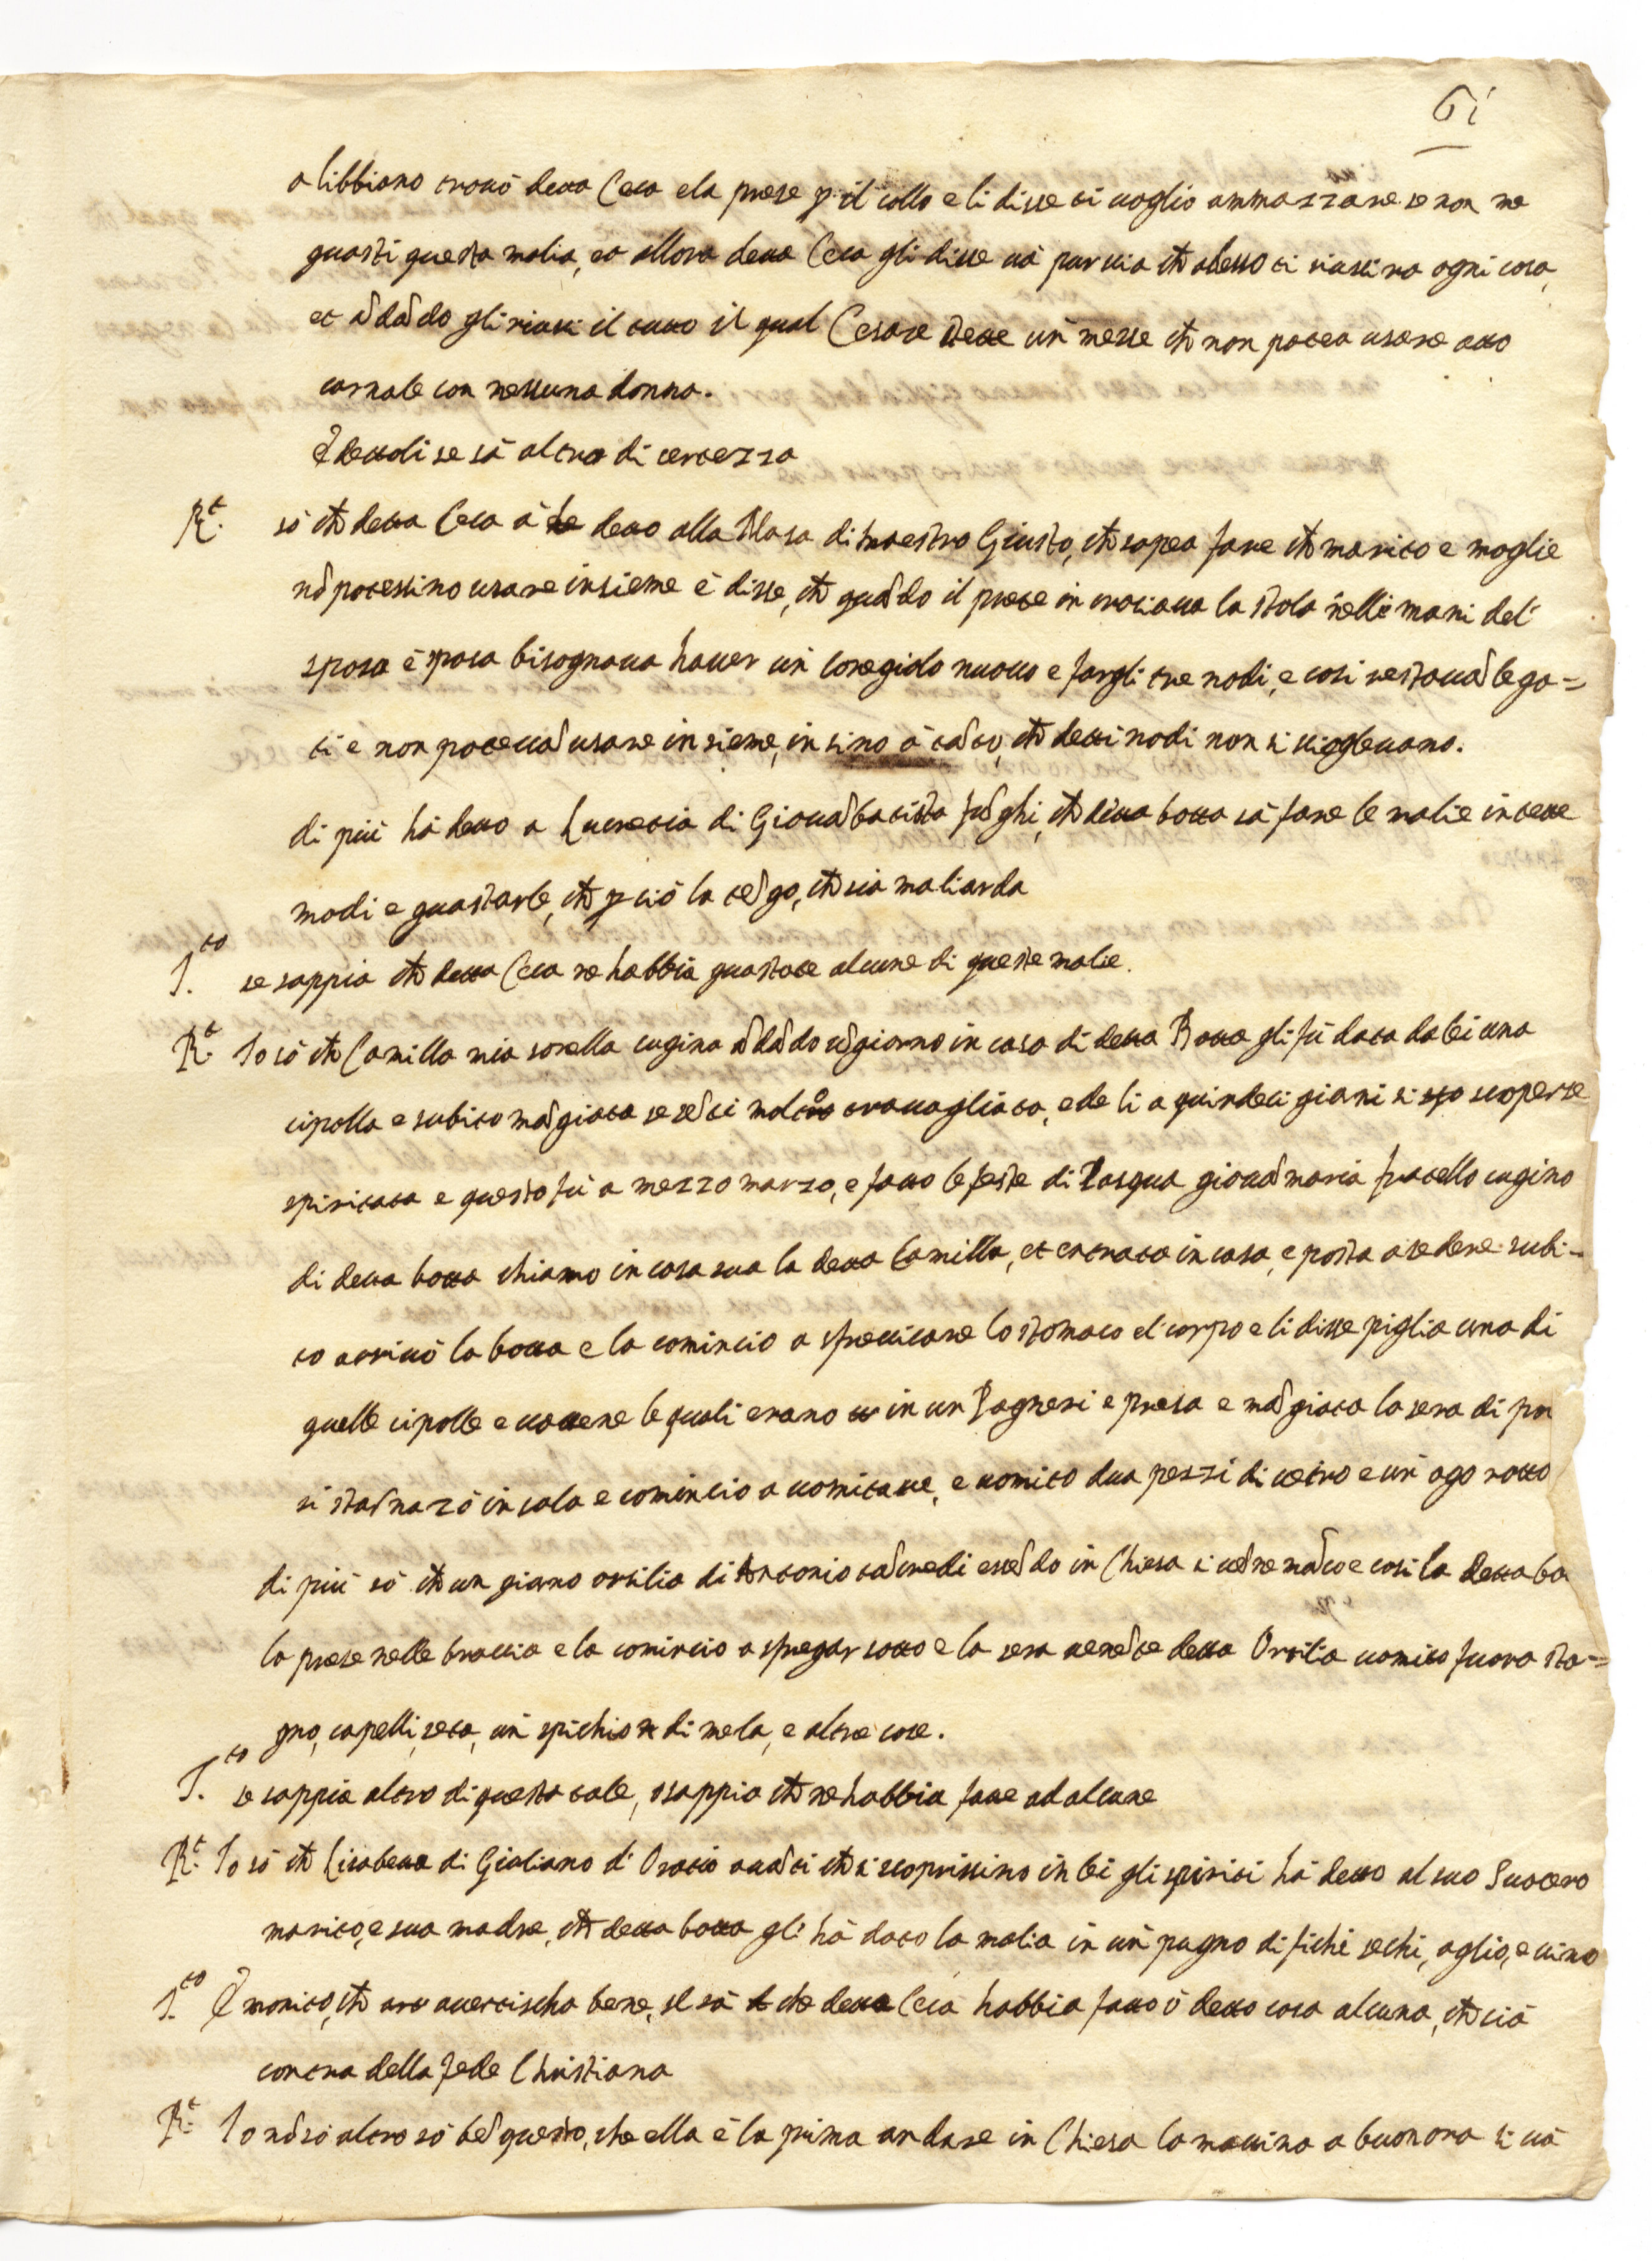 61
a libbiano trovò detta Ceca e la prese p il collo e li disse ti voglio ammazzare se non me
guasti questa malia, et allora detta Ceca gli disse va pur via ch adesso ti riuscira ogni cosa,
et ādādo gli riusci il tutto il qual Cesare stette un messe ch non potea usare atto
carnale con nessuna donna.
E dettoli se sà altro di certezza
R.t sò ch detta Ceca à detto alla Masa di maestro Giusto, ch sapea fare ch marito e moglie
nō potessino usare insieme è disse, ch quādo il prete in crociava la stola nelle mani del
sposo è sposa bisognava haver un coregiolo nuovo e fargli tre nodi, e cosi restavā lega=
ti e non potevā usare insieme, in sino à tāto, ch detti nodi non si sciogleuano.
di più hà detto a Lucretia di Giovābatista fūghi, ch ditta botta sà fare le malie in sette
modi e guastarle, ch p ciò la tēgo, ch sia maliarda
I.to se sappia ch detta Ceca ne habbia guastate alcune di queste malie.
R.t Io sò ch Camilla mia sorella cugina ādādo ūgiorno in casa di detta Botta gli fù data da lei una
cipolla e subito māgiata se sētì molto travagliata, e de li a quindeci giorni si scoperse
spiritata e questo fù a mezzo marzo, e fatto le feste di Pasqua giovāmaria fratello cugino
di detta botta chiamo in casa sua la detta Camilla, et entrata in casa, e posta a sedere subi=
to arrivò la botta e la comincio a spreccicare lo stomaco e'l corpo e li disse piglia una di
quelle cipolle e vattene le quali erano in un Pagneri e presa e māgiata la sera di poi
si starnazò in sala e comincio a vomitare, e vomito dua pezzi di vetro e un ago rotto
di più sò ch un giorno orsilia di Antonio tācredi esēdo in Chiesa si vēne māco e cosi la detta bo
la prese nelle braccia e la comincio a spregar sotto e la sera venēte detta Orsilia vomito fuora sta=
gno, capelli, seta, un spichio di mela, e altre cose.
I.to se sappia altro di questo tale, o sappia ch ne habbia fatte ad alcune
R.t Io sò ch Lisabetta di Giuliano di Oratio avāti ch si scoprissino in lei gli spiriti hà detto al suo Suocero
marito, e sua madre, ch detta botta gli hà dato la malia in un pugno di fichi sechi, aglio, e vino
I.to E monito, ch avertischa bene, se sà che detta Ceca habbia fatto ò detto cosa alcuna, ch sia
contra della fede Christiana
R.t Io nō sò altro sò bē questo, che ella è la prima andare in Chiesa la mattina a buonora si và